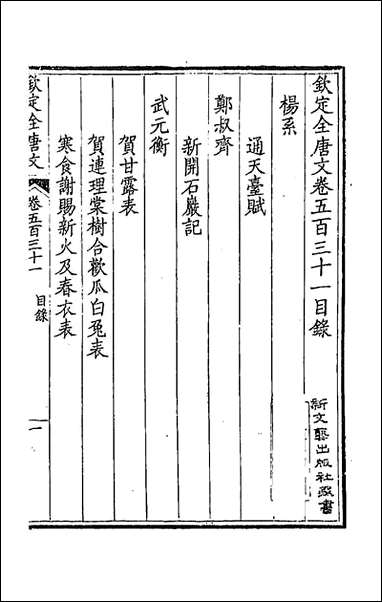 欽定全唐文卷五百三十一目錄
楊系
通天臺賦
鄭叔齊
新開石巖記
武元衡
賀甘露表
賀連理棠樹合歡瓜白兔表
寒食謝賜新火及春衣表
欽定全唐文
卷五百三十一
目錄
一
新文藝出版社藏書